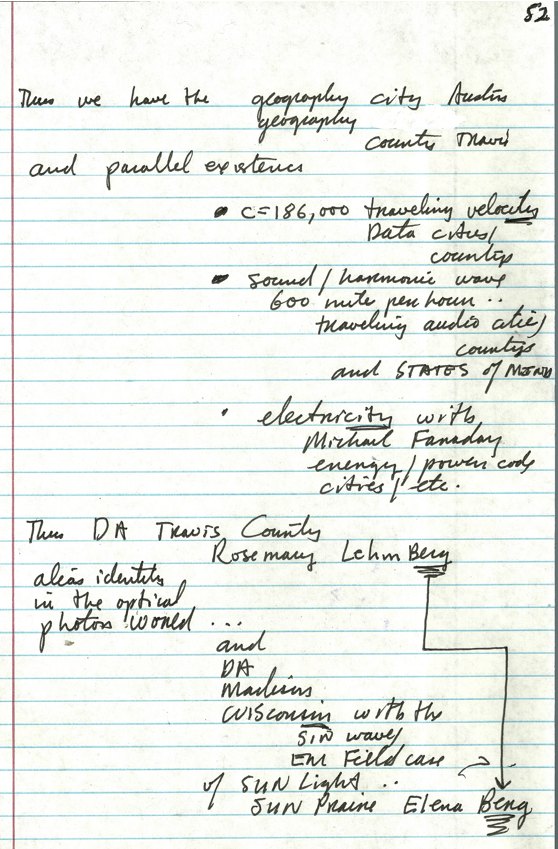 52
Thus we have the geography city Austin
geography
county Travis
and parallel existence
• C=186,000 traveling velocity
Data cities/
countys
• Sound/harmonic wave
600 mile per hour ..
traveling audio cities/
countys
and STATES of MIND
• electricity with
Michael Faraday
energy/power code
cities/etc.
Thus DA Travis County
Rosemary Lehm Berg
alias identity
in the optical
photos world ...
and
DA
Madison
Wisconsin with the
SIN wave/
EM Field case
of SUN Light ..
SUN Prairie Elena Berg